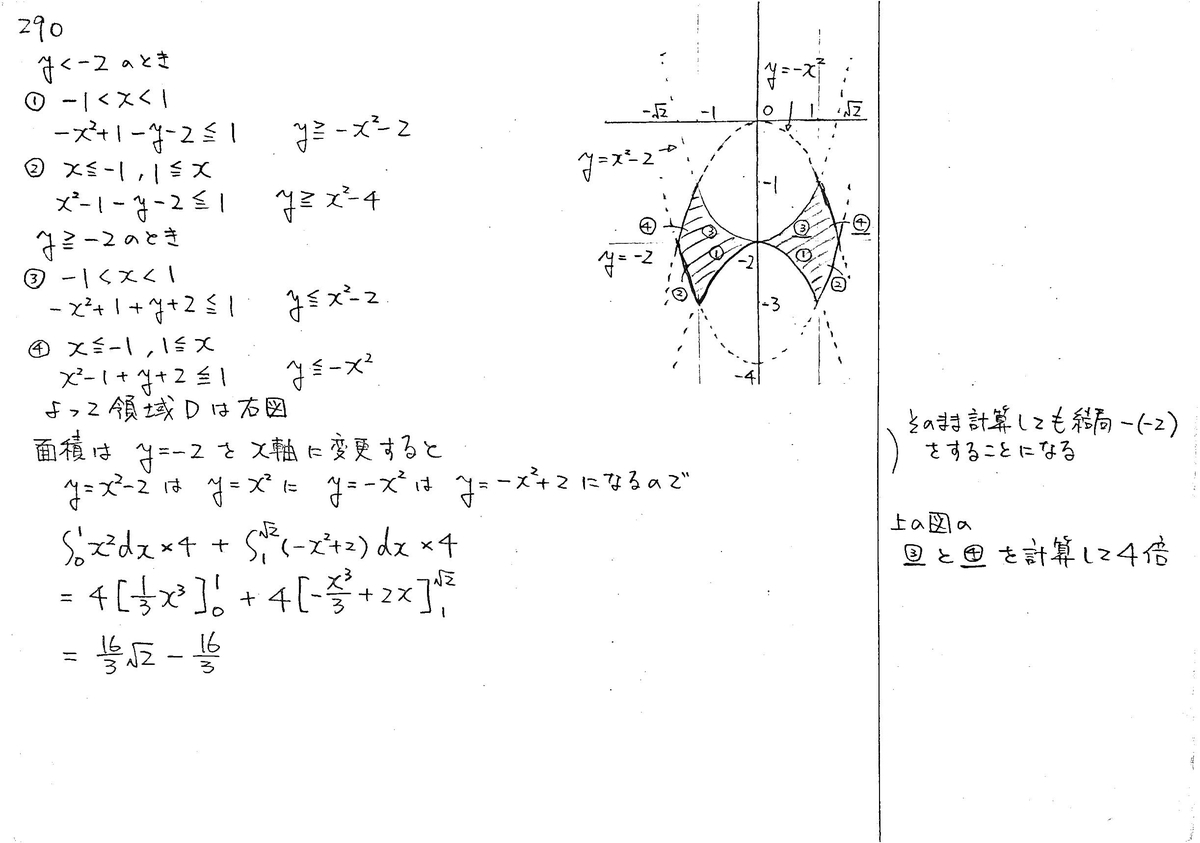 290
y<-2のとき
① -1<x<1
-x²+1-y-2≦1　y≧-x²-2
② x≦-1, 1≦x
x²-1-y-2≦1　y≧x²-4
y≧-2のとき
③ -1<x<1
-x²+1+y+2≦1　y≦x²-2
④ x≦-1, 1≦x
x²-1+y+2≦1　y≦-x²
よって領域Dは右図
面積は y=-2をx軸に変更すると
y=x²-2は y=x²に y=-x²は y=-x²+2になるので
∫₀¹x²dx×4 + ∫₁^√2(-x²+2)dx×4
= 4[1/3 x³]₀¹ + 4[-x³/3+2x]₁^√2
= 16/3 √2 - 16/3
y=-x²
-√2 -1 0 1 √2
y=x²-2
-1
④ ③ ③ ④
y=-2 ① -2 ①
② ②
-3
-4
そのまま計算しても結局-(-2)
をすることになる
上の図の
③と④を計算して4倍